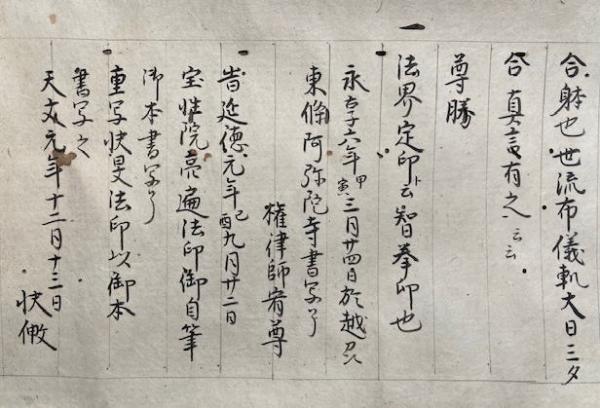 合躰也世流布儀軌大日三夕
合真言有之云云
尊勝
法界定印云ト智拳印也
永享六年甲寅三月廿四日於越
東條阿弥陀寺書写了
権律師宥尊
昔延徳元年己酉九月廿二日
宝性院亮遍法印御自筆
御本書写了
重写快旻法印以御本
書写之
天文元年十二月十三日
快